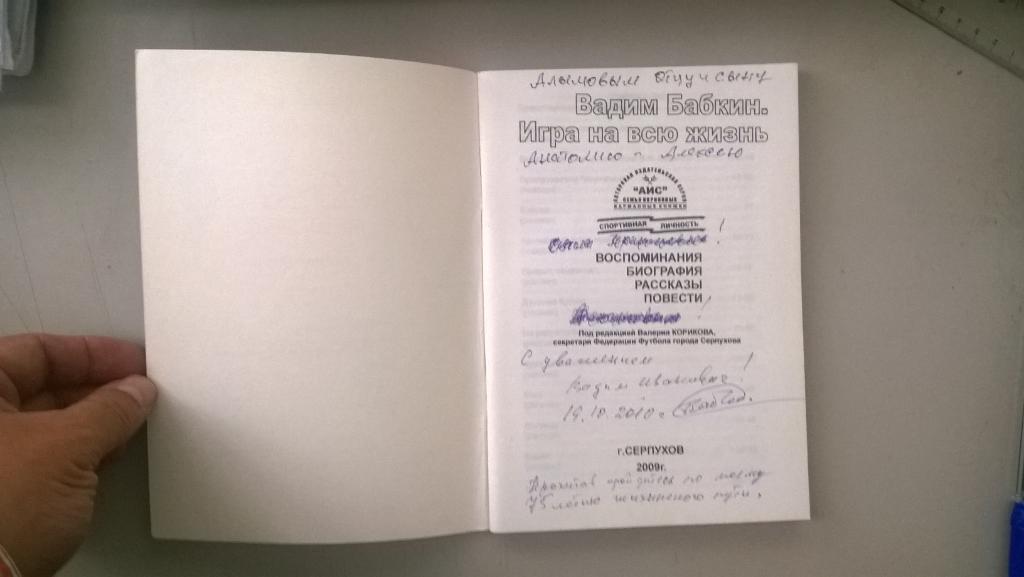 Алымовым Отцу и сыну
Вадим Бабкин.
Игра на всю жизнь
Анатолию и Алексею
"АИС"
СЕМЬИ КОРИКОВЫХ
КАРМАННЫЕ КНИЖКИ
СПОРТИВНАЯ ЛИЧНОСТЬ
!
ВОСПОМИНАНИЯ
БИОГРАФИЯ
РАССКАЗЫ
ПОВЕСТИ
!
Под редакцией Валерия КОРИКОВА,
секретаря Федерации Футбола города Серпухова
С уважением !
Вадим Иванович
19.10.2010 г.
г.СЕРПУХОВ
2009г.
Прочитав пройдитесь по моему
75 летию жизненного пути.